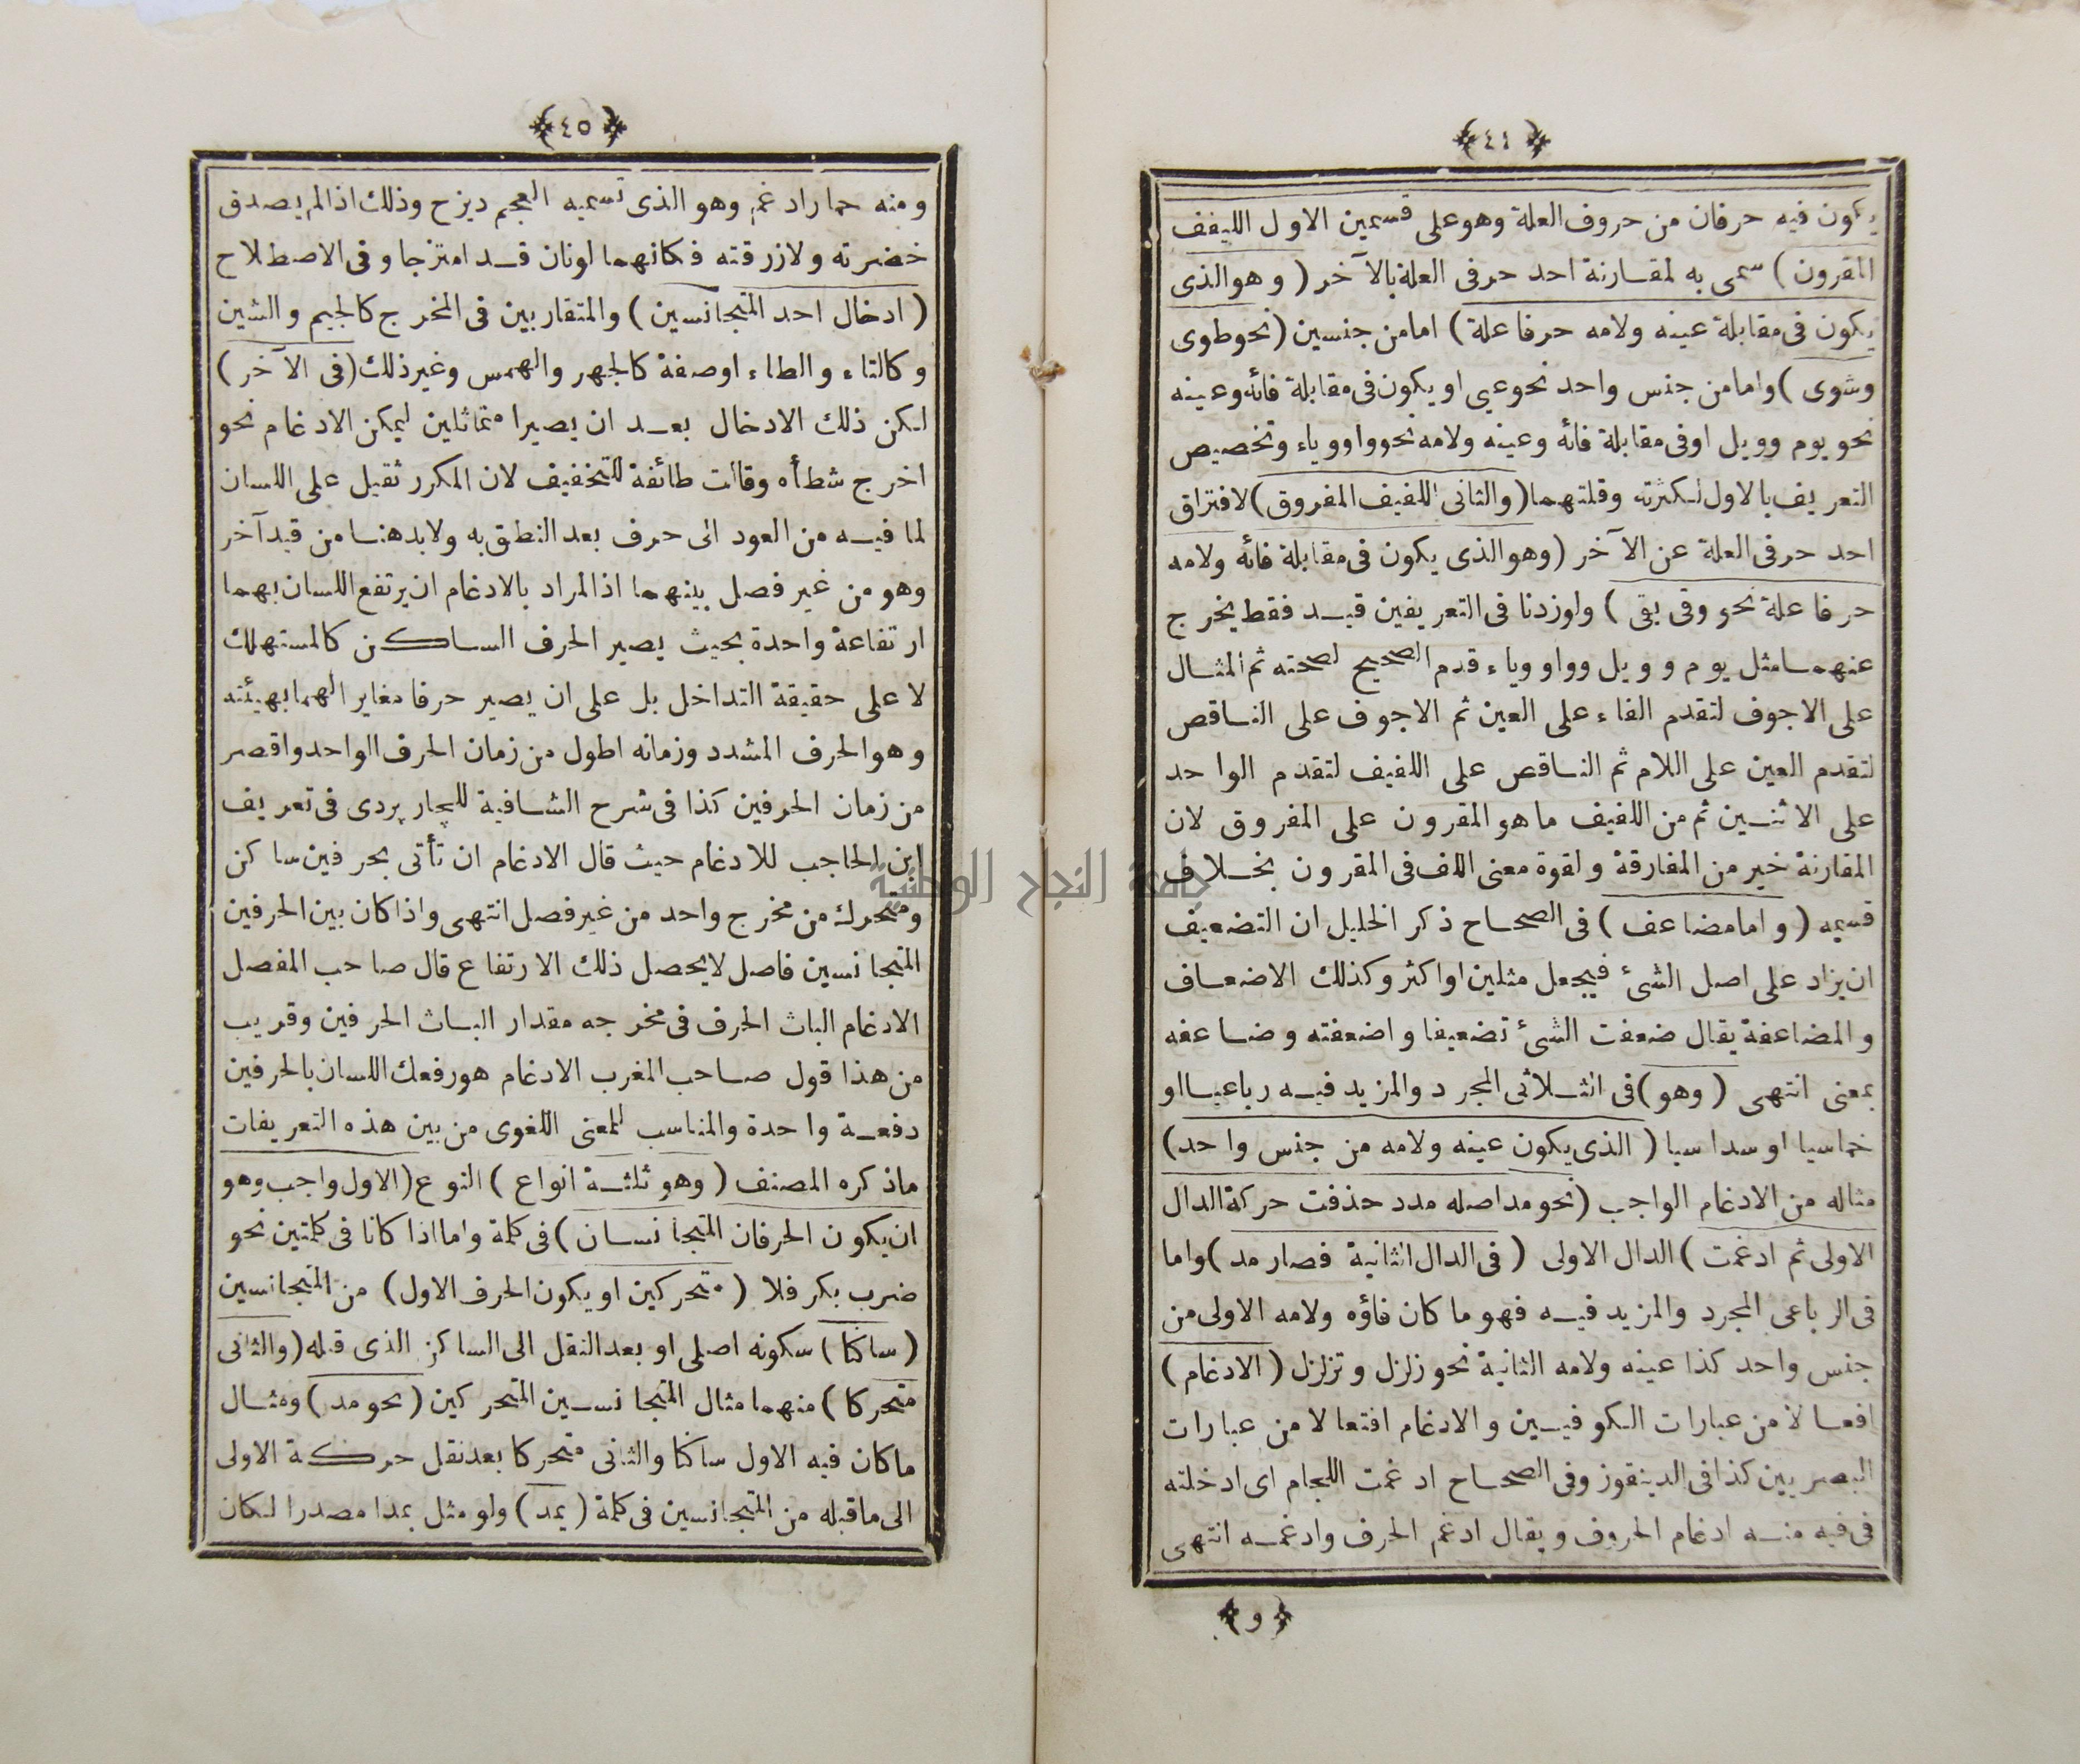 ٤٤
يكون فيه حرفان من حروف العلة وهو على قسمين الاول اللفيف
المقرون) سمى به لمقارنة احد حرفى العلة بالآخر (وهو الذى
يكون فى مقابلة عينه ولامه حرفا علة) اما من جنسين (نحو طوى
وشوى) واما من جنس واحد نحو عيى او يكون فى مقابلة فائه وعينه
نحو يوم وويل او فى مقابلة فائه وعينه ولامه نحو واو وياء وتخصيص
التعريف بالاول لكثرته وقلتهما (والثانى اللفيف المفروق) لافتراق
احد حرفى العلة عن الآخر (وهو الذى يكون فى مقابلة فائه ولامه
حرفا علة نحو وقى يقى) ولو زدنا فى التعريفين قيد فقط يخرج
عنهما مثل يوم وويل وواو وياء قدم الصحيح لصحته ثم المثال
على الاجوف لتقدم الفاء على العين ثم الاجوف على الناقص
لتقدم العين على اللام ثم الناقص على اللفيف لتقدم الواحد
على الاثنين ثم من اللفيف ما هو المقرون على المفروق لان
المقارنة خير من المفارقة ولقوة معنى اللف فى المقرون بخلاف
قسيمه (واما مضاعف) فى الصحاح ذكر الخليل ان التضعيف
ان يزاد على اصل الشئ فيجعل مثلين او اكثر وكذلك الاضعاف
والمضاعفة يقال ضعفت الشئ تضعيفا واضعفته وضاعفه
بمعنى انتهى (وهو) فى الثلاثى المجرد والمزيد فيه رباعيا او
خماسيا او سداسيا (الذى يكون عينه ولامه من جنس واحد)
مثاله من الادغام الواجب (نحو مد اصله مدد حذفت حركة الدال
الاولى ثم ادغمت) الدال الاولى (فى الدال الثانية فصار مد) واما
فى الرباعى المجرد والمزيد فيه فهو ما كان فاؤه ولامه الاولى من
جنس واحد كذا عينه ولامه الثانية نحو زلزل وتزلزل (الادغام)
افعالا من عبارات الكوفيين والادغام افتعالا من عبارات
البصريين كذا فى الدينقوز وفى الصحاح ادغمت اللجام اى ادخلته
فى فيه منه ادغام الحروف ويقال ادغم الحرف وادغمه انتهى
و
٤٥
ومنه حمار ادغم وهو الذى تسميه العجم ديزح وذلك اذا لم يصدق
خضرته ولا زرقته فكانهما لونان قد امتزجا وفى الاصطلاح
(ادخال احد المتجانسين) والمتقاربين فى المخرج كالجيم والشين
وكالتاء والطاء او صفة كالجهر والهمس وغير ذلك (فى الآخر)
لكن ذلك الادخال بعد ان يصيرا متماثلين ليمكن الادغام نحو
اخرج شطأه وقالت طائفة للتخفيف لان المكرر ثقيل على اللسان
لما فيه من العود الى حرف بعد النطق به ولابد هنا من قيد آخر
وهو من غير فصل بينهما اذ المراد بالادغام ان يرتفع اللسان بهما
ارتفاعة واحدة بحيث يصير الحرف الساكن كالمستهلك
لا على حقيقة التداخل بل على ان يصير حرفا مغايرا لهما بهيئته
وهو الحرف المشدد وزمانه اطول من زمان الحرف الواحد واقصر
من زمان الحرفين كذا فى شرح الشافية للجار پردى فى تعريف
ابن الحاجب للادغام حيث قال الادغام ان تأتى بحرفين ساكن
ومتحرك من مخرج واحد من غير فصل انتهى واذا كان بين الحرفين
المتجانسين فاصل لا يحصل ذلك الارتفاع قال صاحب المفصل
الادغام الباث الحرف فى مخرجه مقدار الباث الحرفين وقريب
من هذا قول صاحب المغرب الادغام هو رفعك اللسان بالحرفين
دفعة واحدة والمناسب للمعنى اللغوى من بين هذه التعريفات
ما ذكره المصنف (وهو ثلثة انواع) النوع (الاول واجب وهو
ان يكون الحرفان المتجانسان) فى كلمة واما اذا كانا فى كلمتين نحو
ضرب بكر فلا (متحركين او يكون الحرف الاول) من المتجانسين
(ساكنا) سكونه اصلى او بعد النقل الى الساكن الذى قبله (والثانى
متحركا) منهما مثال المتجانسين المتحركين (نحو مد) ومثال
ما كان فيه الاول ساكنا والثانى متحركا بعد نقل حركة الاولى
الى ما قبله من المتجانسين فى كلمة (يمد) ولو مثل بمدا مصدرا لكان
جامعة النجاح الوطنية